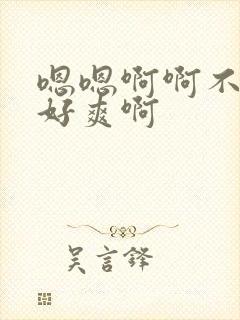 嗯嗯啊啊不
好爽啊
吴言铎